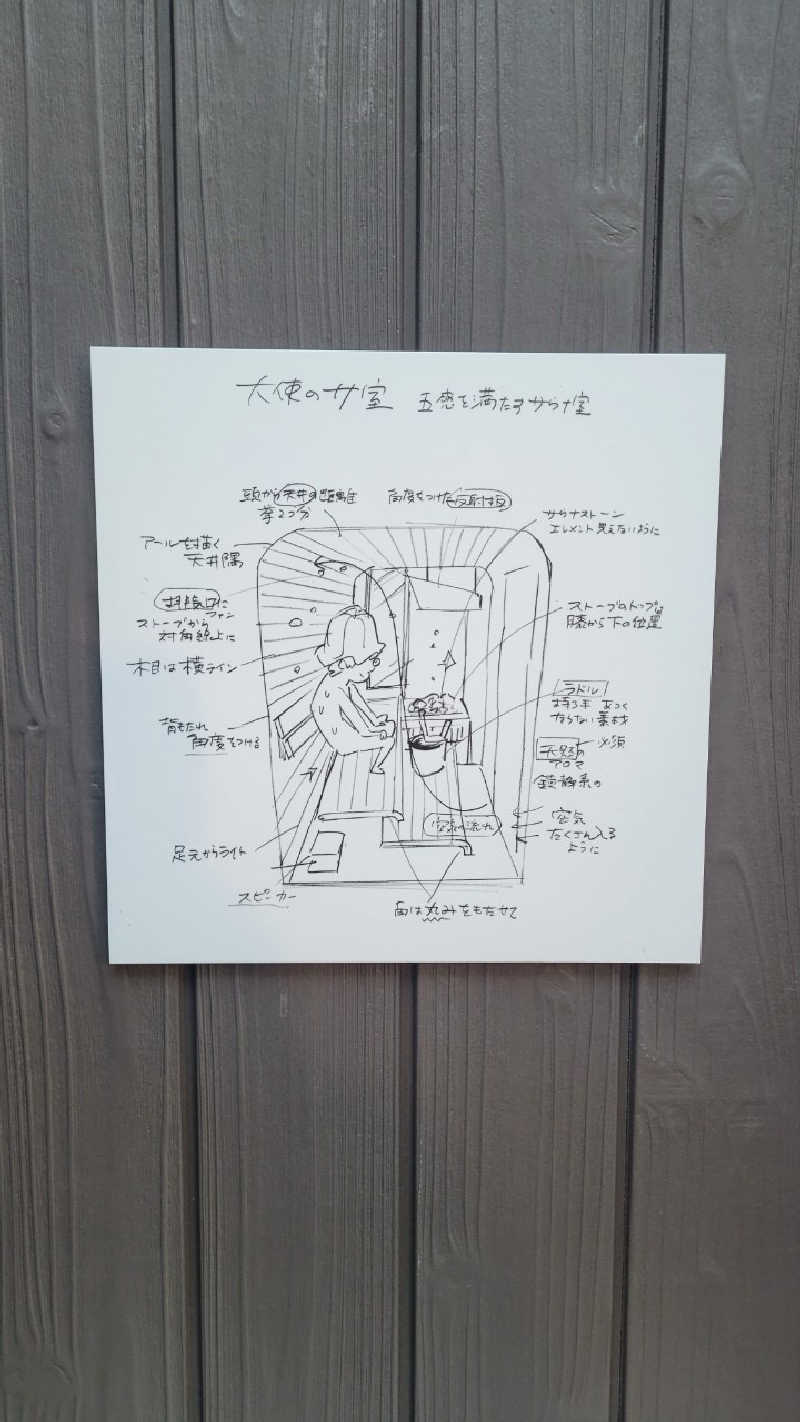 大使のサ室 五感を満たすサウナ室
頭から天井の距離
拳2つ分
角度をつけた反射板
サウナストーン
エレメント見えないように
アールを描く
天井隅
排気口に
ファン
ストーブから
対角線上に
ストーブのトップは
膝から下の位置
木目は横ライン
ラドル
持ち手 あつく
ならない素材
背もたれ
角度をつける
天然の 必須
アロマ
鎮静系の
空気の流れ
空気
たくさん入る
ように
足元からライト
スピーカー
角は丸みをもたせて